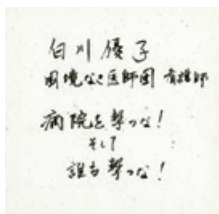 白川優子
国境なき医師団 看護師
病院を撃つな!
そして
誰も撃つな!